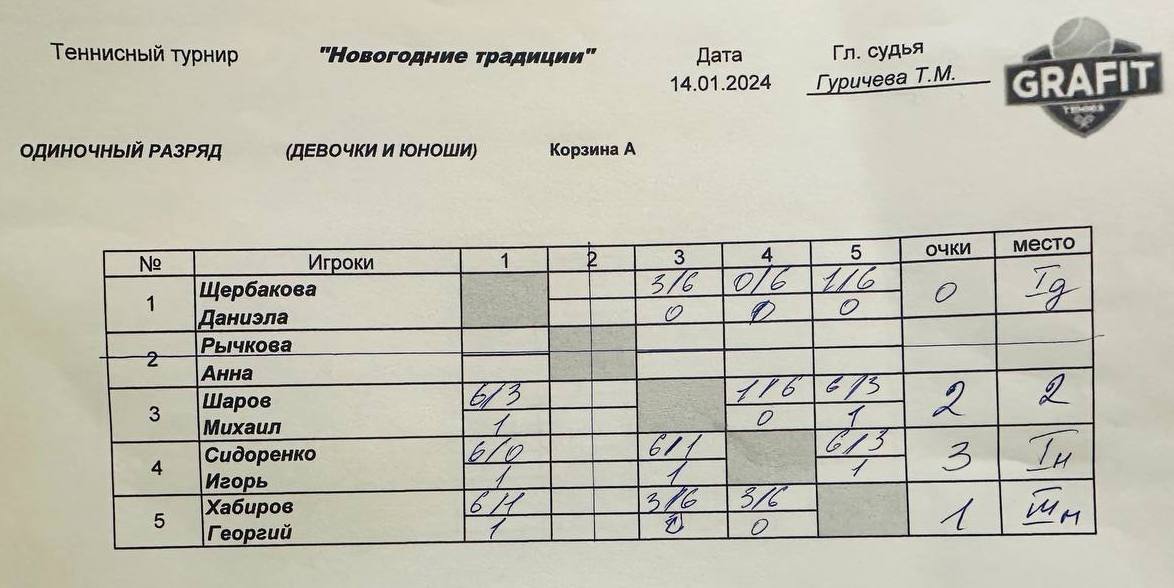 Теннисный турнир "Новогодние традиции" Дата Гл. судья
14.01.2024 Гуричева Т.М.
GRAFIT
ОДИНОЧНЫЙ РАЗРЯД (ДЕВОЧКИ И ЮНОШИ) Корзина А
№ Игроки 1 2 3 4 5 очки место
1 Щербакова 3/6 0/6 1/6 0 Iд
Даниэла 0 0 0
2 Рычкова
Анна
3 Шаров 6/3 1/6 6/3 2 2
Михаил 1 0 1
4 Сидоренко 6/0 6/1 6/3 3 Iн
Игорь 1 1 1
5 Хабиров 6/1 3/6 3/6 1 IIIн
Георгий 1 0 0